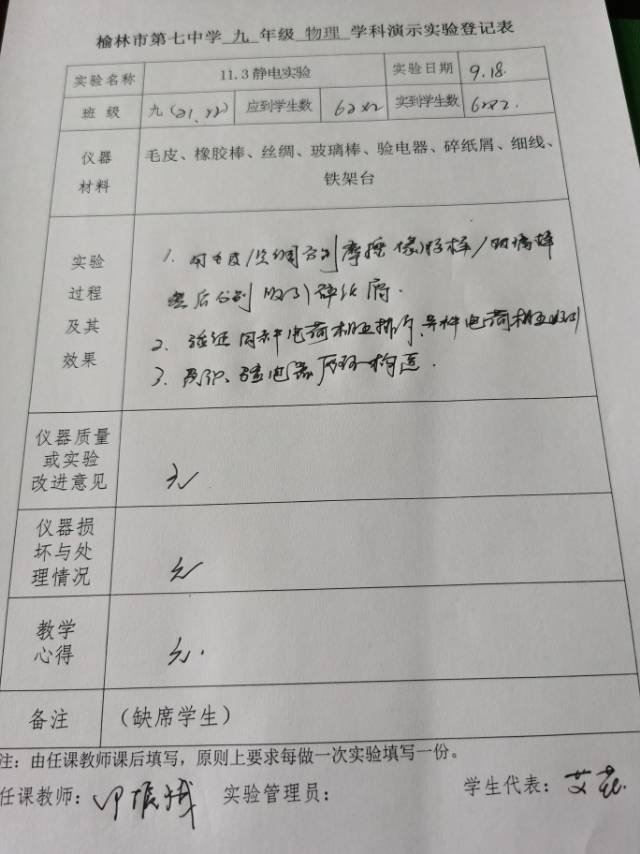 榆林市第七中学 九 年级 物理 学科演示实验登记表
实验名称 11.3静电实验 实验日期 9.18.
班 级 九(21.22) 应到学生数 62×2 实到学生数 62×2.
仪器材料 毛皮、橡胶棒、丝绸、玻璃棒、验电器、碎纸屑、细线、
铁架台
实验
过程
及其
效果
1. 用毛皮/丝绸分别摩擦橡胶棒/玻璃棒
然后分别吸引碎纸屑.
2. 验证同种电荷相互排斥,异种电荷相互吸引
3. 认识验电器 构造.
仪器质量
或实验
改进意见
无
仪器损
坏与处
理情况
无
教学
心得
无.
备注 (缺席学生)
注：由任课教师课后填写，原则上要求每做一次实验填写一份。
任课教师: 实验管理员: 学生代表: 艾